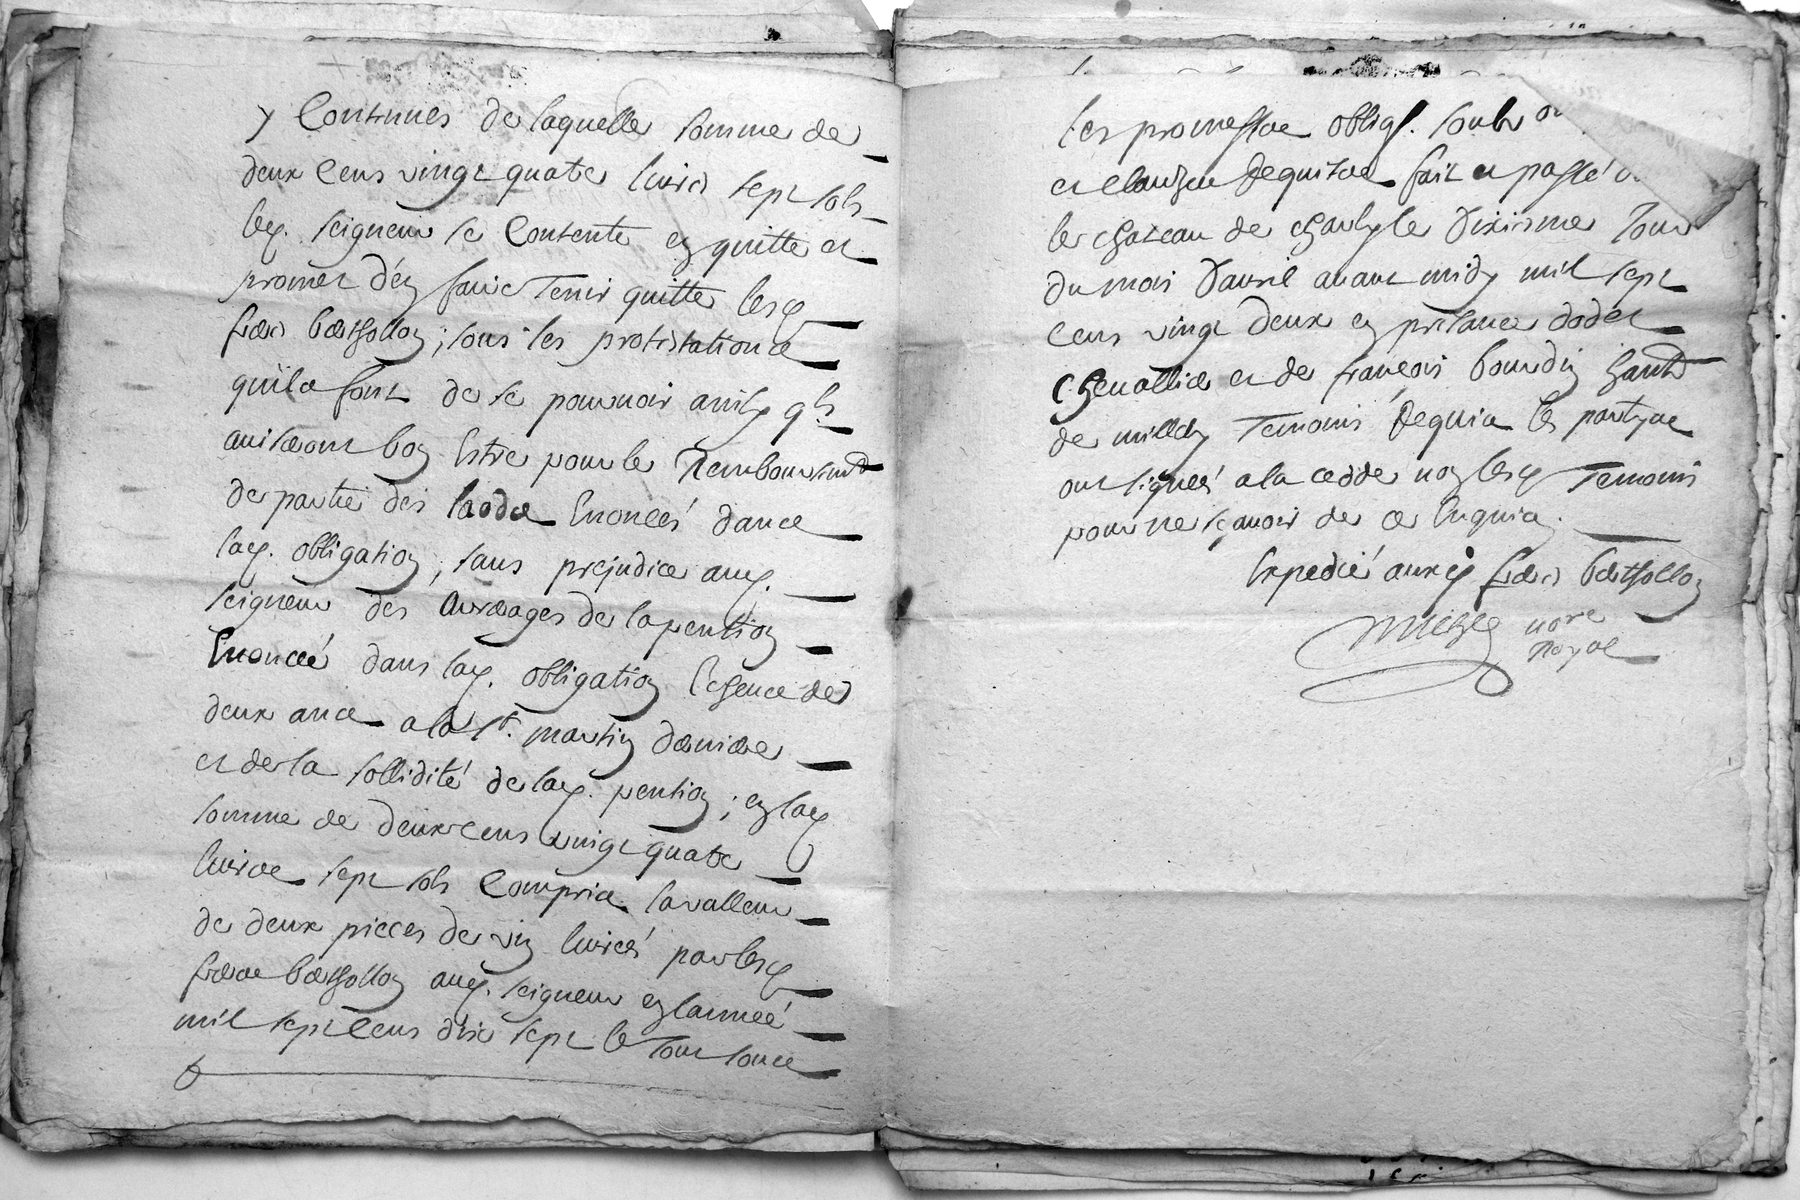 y Contenues de laquelle somme de
deux Cens vingt quatre livres sept sols
led. seigneur se Contente en quitte et
promet d'en faire Tenir quitte lesd
freres berthollon; sous les protestations
quils font de se pouruoir ainsy qls
auiseront bon Estre pour le Remboursmt
de partie des Enoncés dans
lad. obligation, sans prejudice aud.
seigneur des Arrerages de la pention
Enoncée dans lad. obligation Echeue de
deux ans a la St. martin derniere
et de la sollidité de lad. pention; en lad
somme de deux cens vingt quatre
livres sept sols Compris la valleur
de deux pieces de vin livrés par lesd
freres berthollon aud. seigneur en lannée
mil sept Cens dix sept le Tout sous
les promesses obligs. soub
et clauzes Requises fait et passé
le chateau de le Dixieme Jour
du mois d'auril auant midy mil sept
Cens vingt deux en presance d'odet
Chenallier et de françois bourdin habts
de milly Temoins Requis les partyes
ont signés a la cedde non lesd Temoins
pour ne sçauoir de ce Enquis.
Expedié auxd freres berthollon
nore
Royal